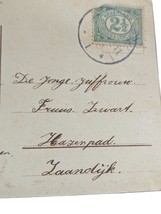 2½
De Jonge Juffrouw
Truus Zwart.
Hazenpad.
Zaandijk.